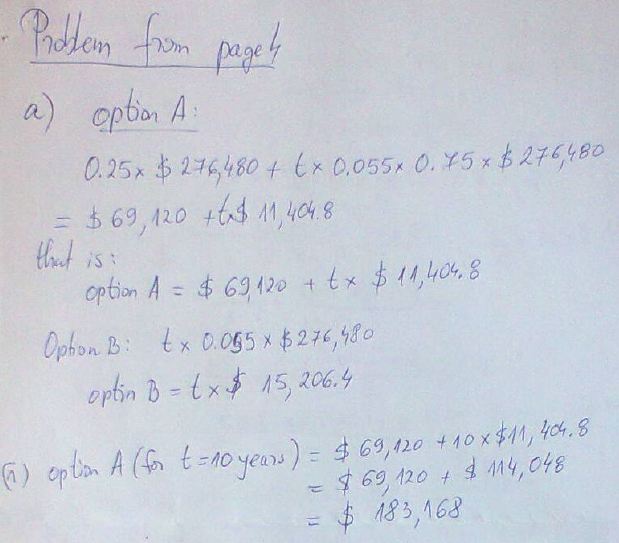 Problem from page 4
a) option A:
0.25x $ 276,480 + t x 0.055x 0.75 x $ 276,480
= $ 69,120 + t x $ 11,404.8
that is:
option A = $ 69,120 + t x $ 11,404.8
Option B: t x 0.055 x $ 276,480
optin B = t x $ 15,206.4
(ii) option A (for t=10 years) = $ 69,120 + 10 x $11,404.8
= $ 69,120 + $ 114,048
= $ 183,168